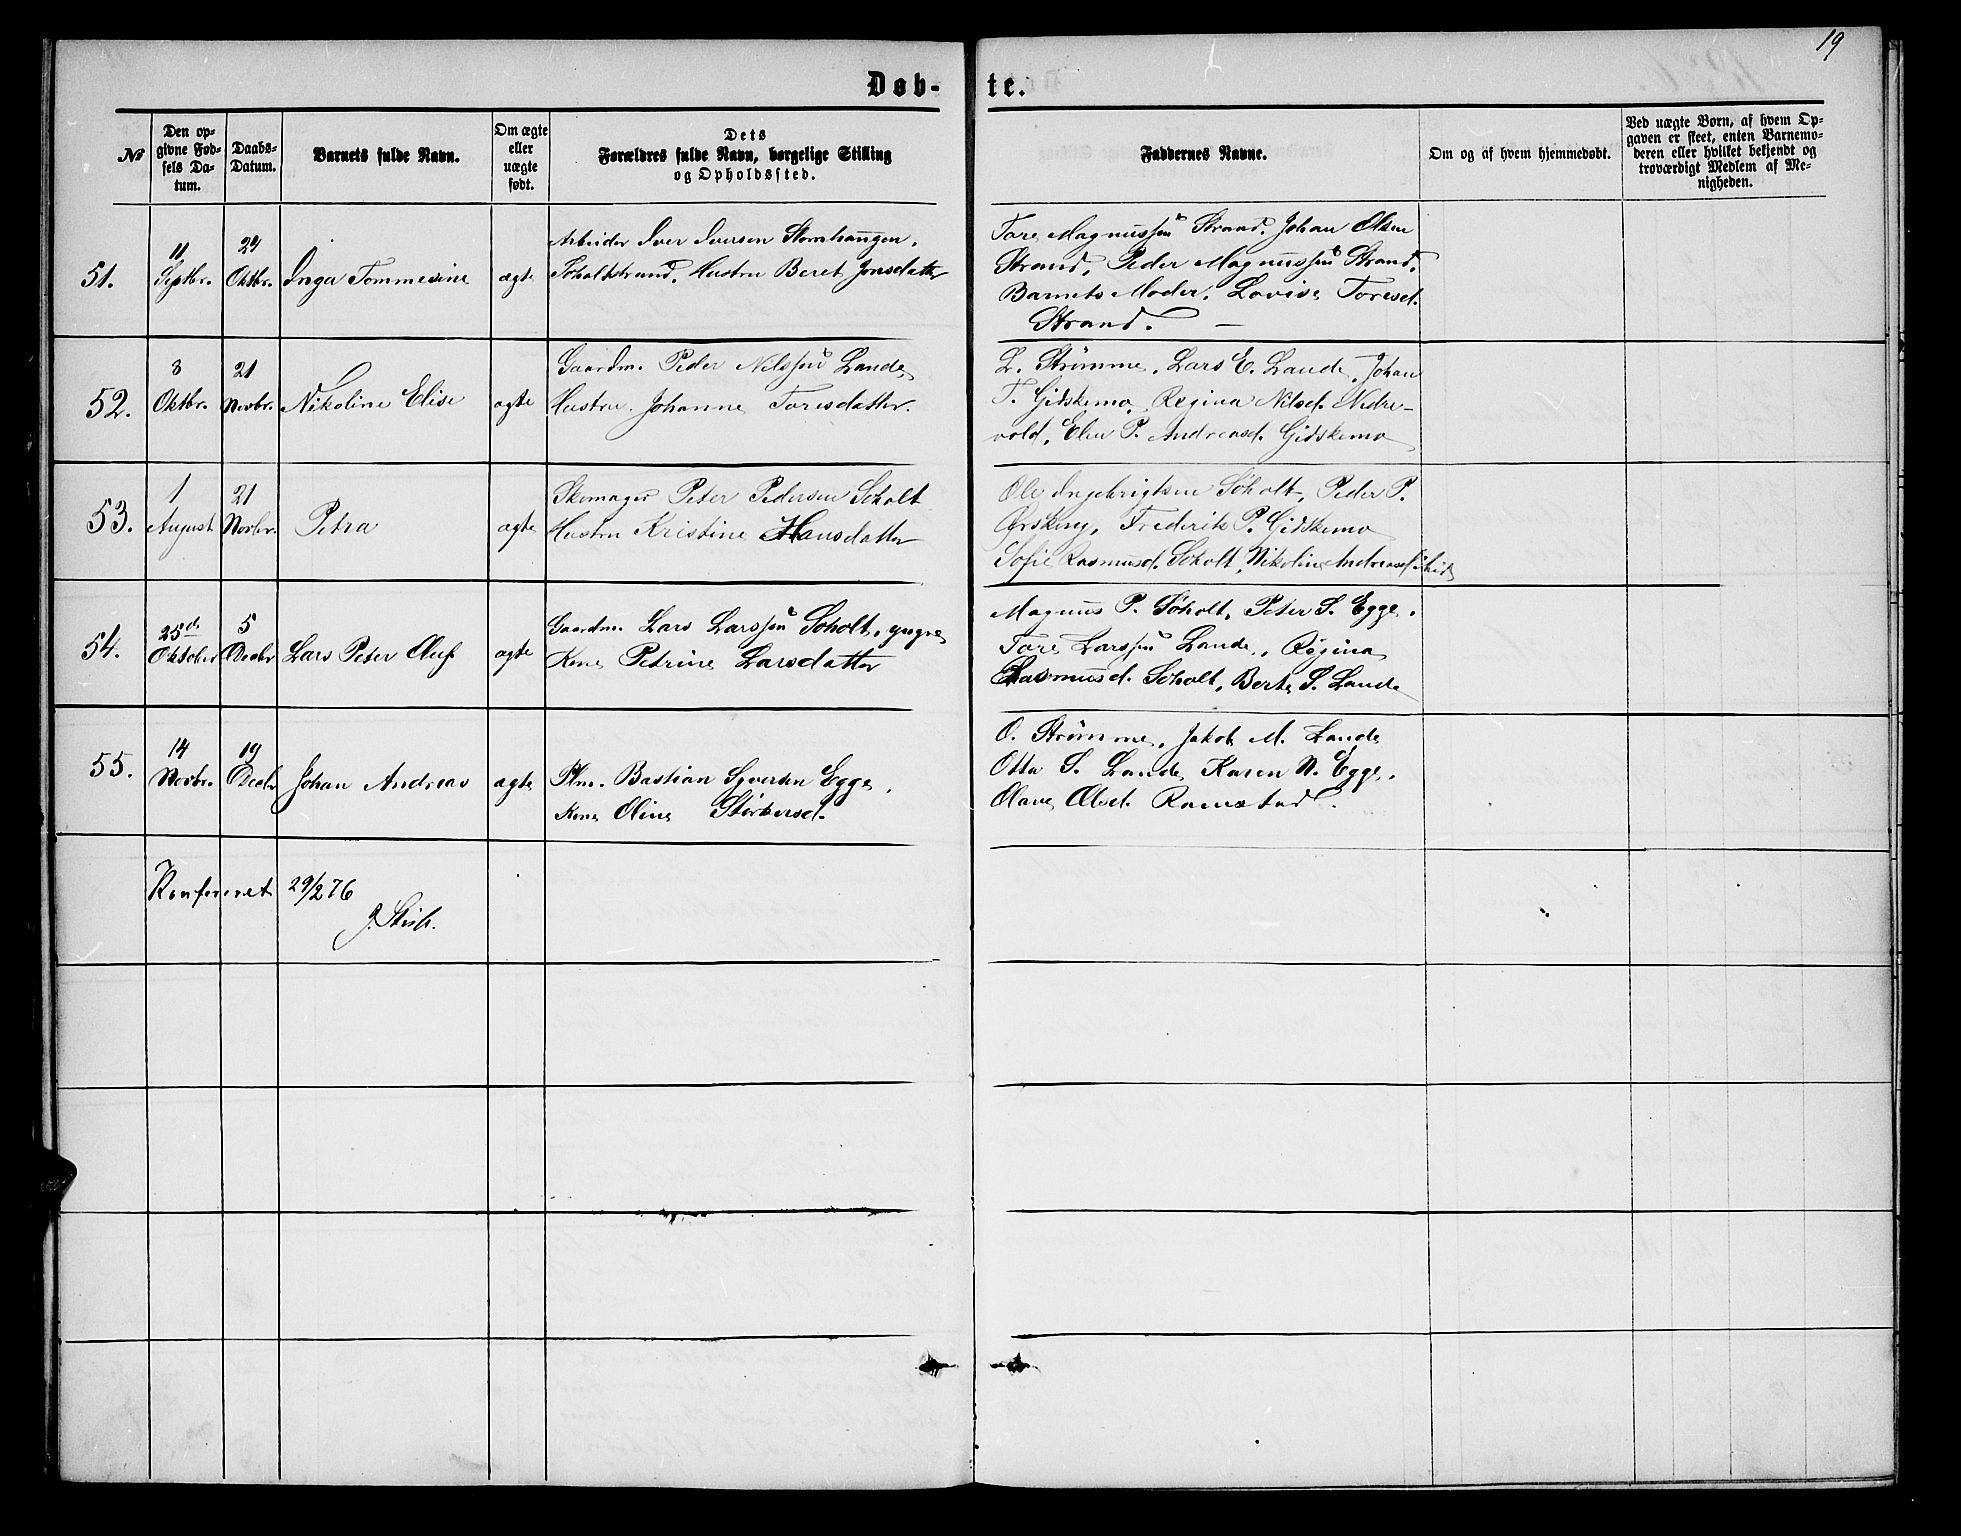 19
Døb- te.
№
Den op-
givne Fød-
sels Da-
tum.
Daabs-
Datum.
Barnets fulde Navn.
Om ægte
eller
uægte
født.
Dets
Forældres fulde Navn, borgelige Stilling
og Opholdssted.
Faddernes Navne.
Om og af hvem hjemmedøbt.
Ved uægte Børn, af hvem Op-
gaven er skeet, enten Barnemo-
deren eller hvilket bekjendt og
troværdigt Medlem af Me-
nigheden.
51.
11
Septbr.
24
Oktbr.
Inga Tommesine
ægte
Arbeider Iver Iversen Storhaugen,
Søholdstrand, Hustru Beret Jonsdatter
Tore Magnussen Strand, Johan Olsen
Strand, Peder Magnussen Strand,
Barnets Moder, Lovise Toresd.
Strand. —
52.
3
Oktbr.
21
Novbr.
Nikoline Elise
ægte
Gaardm. Peder Nilssen Lande,
Hustru Johanne Toresdatter.
L. Strømme, Lars E. Lande, Johan
T. Gidskemo, Regina Nilsd. Nedre-
vold, Elen P. Andreasd. Gidskemo
53.
1
August
21
Novbr.
Petra
ægte
Skomager Peter Pedersen Søholt
Hustru Kristine Hansdatter
Ole Ingebrigtsen Søholt, Peder P.
Ørskoug, Frederik P. Gidskemo
Sofie Rasmusd. Søholt, Nikoline Andreasd.
54.
25de
Oktober
5
Decbr
Lars Peter Oluf
ægte
Gaardm. Lars Larssen Søholt, yngre
Kone Petrine Larsdatter
Magnus P. Søholt, Peter S. Egge,
Tore Larssen Lande, Regina
Rasmusd. Søholt, Berte S. Lande
55.
14
Novbr.
19
Decbr
Johan Andreas
ægte
Plm. Bastian Syversen Egge,
Kone Oline Størkersd.
O. Strømme, Jakob M. Lande
Otta S. Lande, Karen N. Egge,
Olave Olsd. Ramstad.
Konfereret 29/2 76